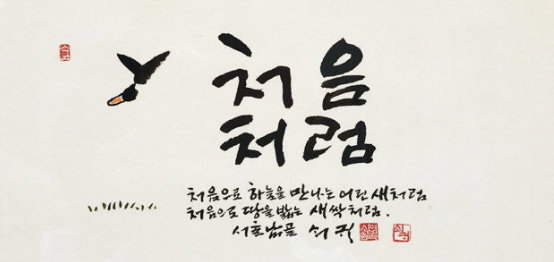 처음
처럼
처음으로 하늘을 만나는 어린 새처럼
처음으로 땅을 밟는 새싹처럼.